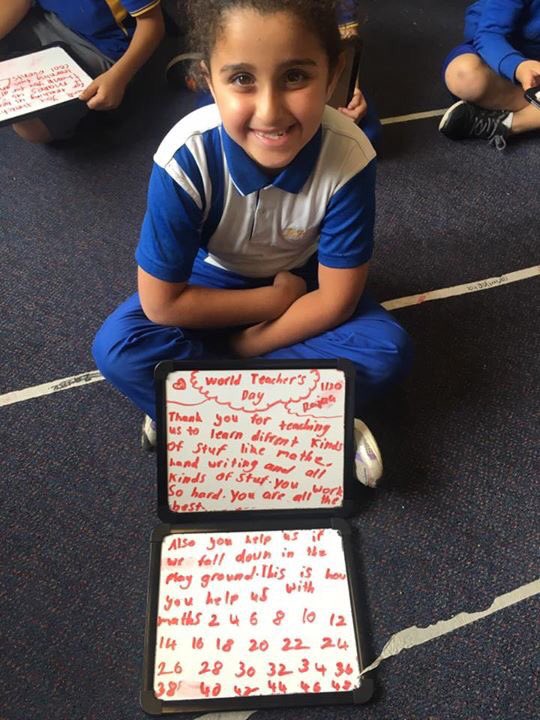 World Teacher's
Day
Thank you for teaching
us to learn difrent kinds
of stuf like maths,
hand writing and all
kinds of stuf. you work
So hard. you are all the
best.
Also you help us if
we fall down in the
play ground. This is how
you help us with
maths 2 4 6 8 10 12
14 16 18 20 22 24
26 28 30 32 34 36
38 40 42 44 46 48